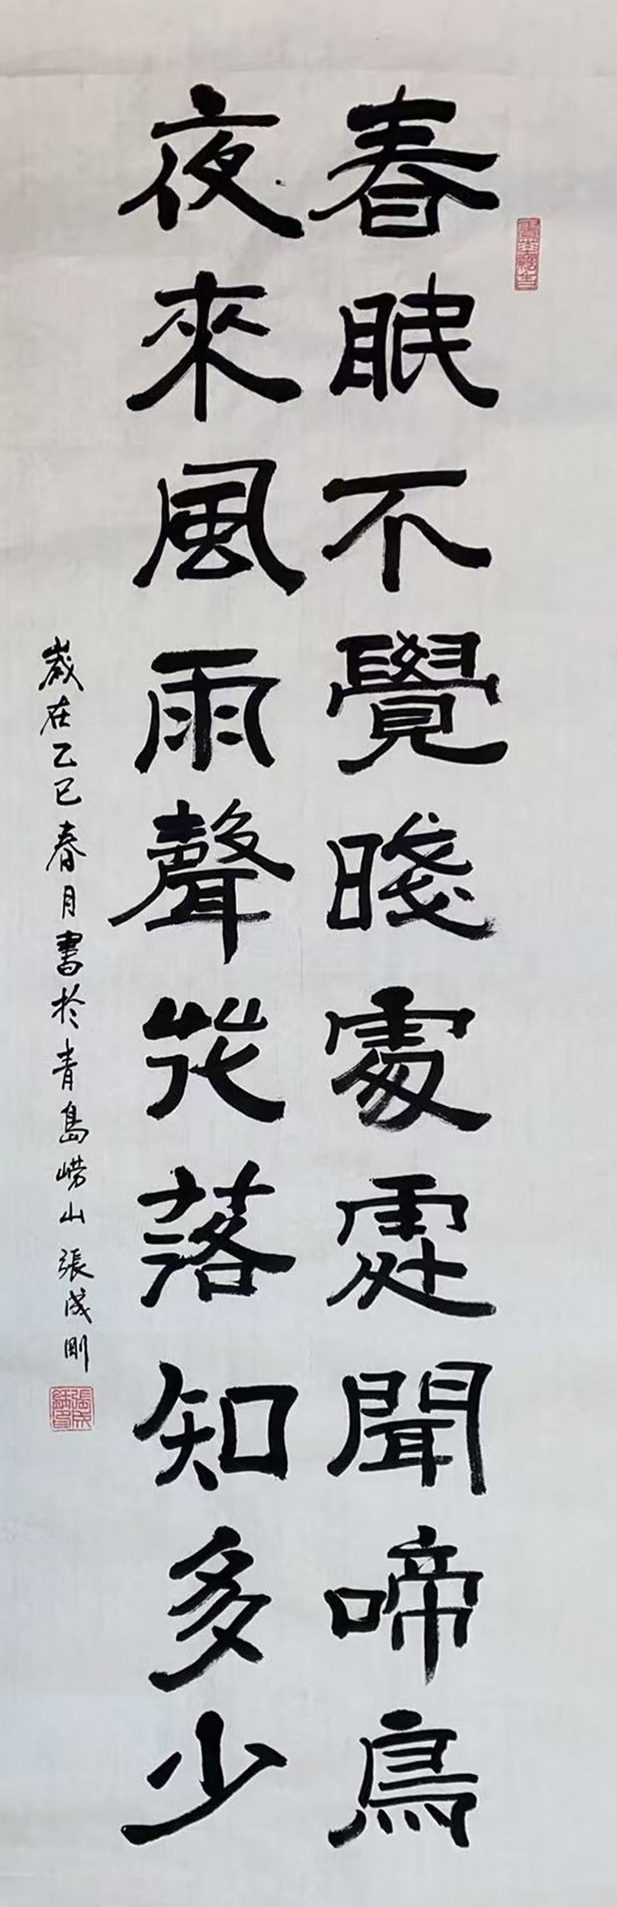 春眠不覺晓處處聞啼鳥
夜來風雨聲花落知多少
歲在乙巳春月書於青島崂山張成剛